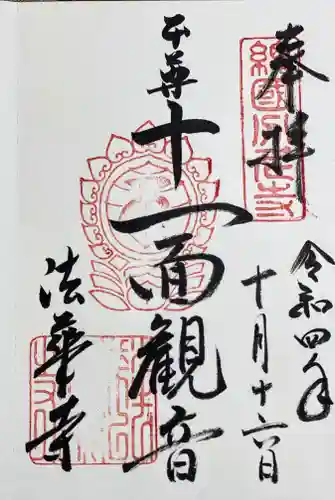 奉拝
令和四年
十月十六日
本尊
十一面観音
法華寺